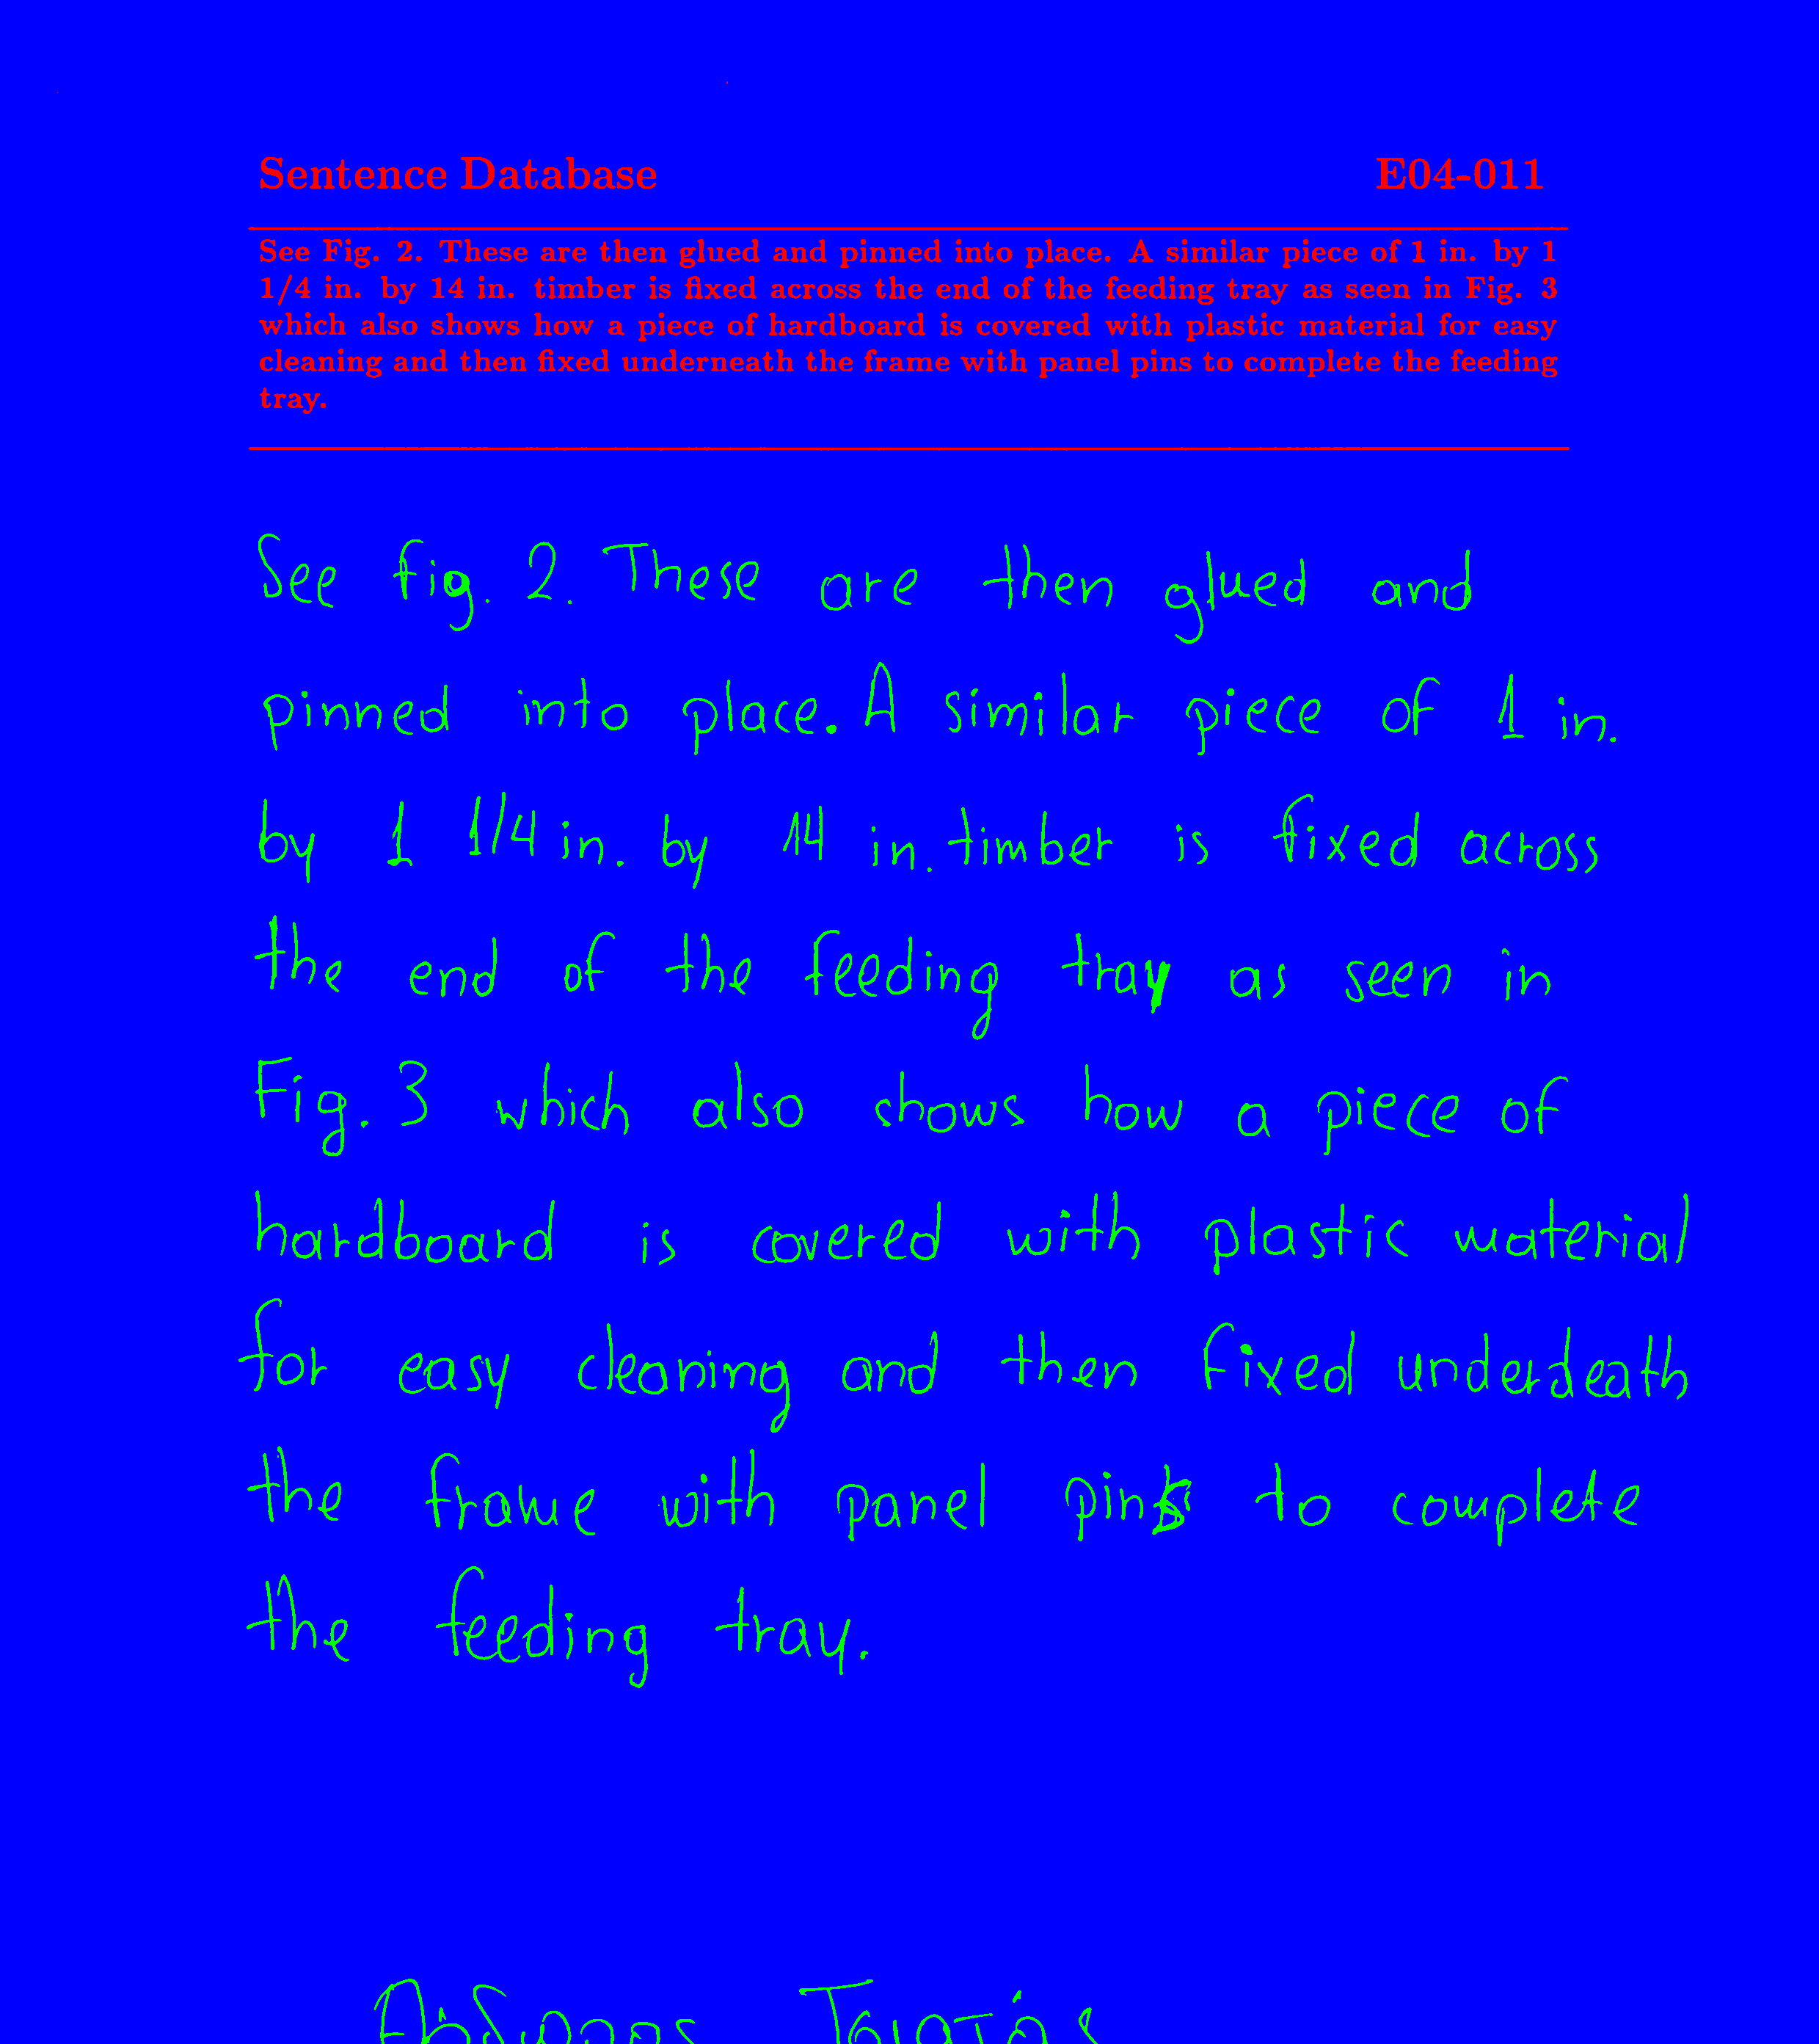 Sentence Database E04-011
See Fig. 2. These are then glued and pinned into place. A similar piece of 1 in. by 1
1/4 in. by 14 in. timber is fixed across the end of the feeding tray as seen in Fig. 3
which also shows how a piece of hardboard is covered with plastic material for easy
cleaning and then fixed underneath the frame with panel pins to complete the feeding
tray.
See fig. 2. These are then glued and
pinned into place. A similar piece of 1 in.
by 1 1/4 in. by 14 in. timber is fixed across
the end of the feeding tray as seen in
Fig. 3 which also shows how a piece of
hardboard is covered with plastic material
for easy cleaning and then fixed underdeath
the frame with panel pins to complete
the feeding tray.